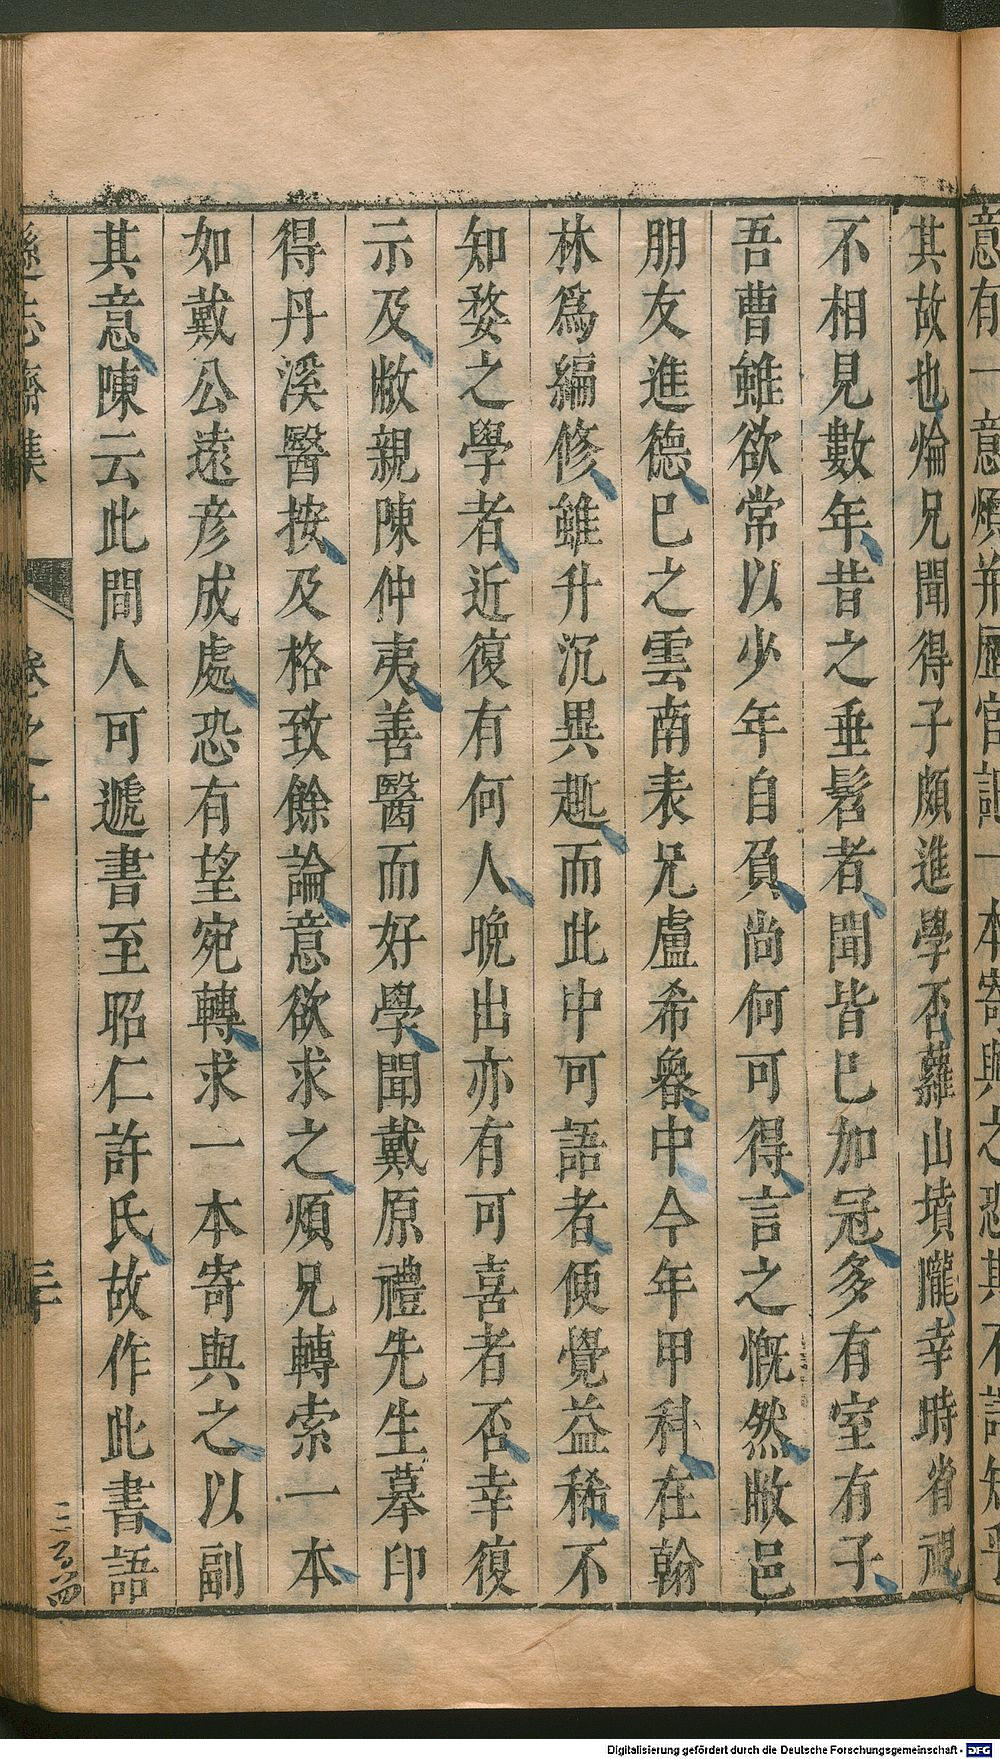 其故也爚兄聞得子頗進學否蘿山墳隴幸時省視
不相見數年昔之垂髫者聞皆已加冠多有室有子
吾曹雖欲常以少年自負尚何可得言之慨然敝邑
朋友進德已之雲南表兄盧希魯中今年甲科在翰
林爲編修雖升沉異趣而此中可語者便覺益稀不
知婺之學者近復有何人晚出亦有可喜者否幸復
示及敝親陳仲夷善醫而好學聞戴原禮先生摹印
得丹溪醫按及格致餘論意欲求之煩兄轉索一本
如戴公遠彦成處恐有望宛轉求一本寄與之以副
其意陳云此間人可遞書至昭仁許氏故作此書語
遜志齋集 卷之十 三十
三百四
Digitalisierung gefördert durch die Deutsche Forschungsgemeinschaft - DFG